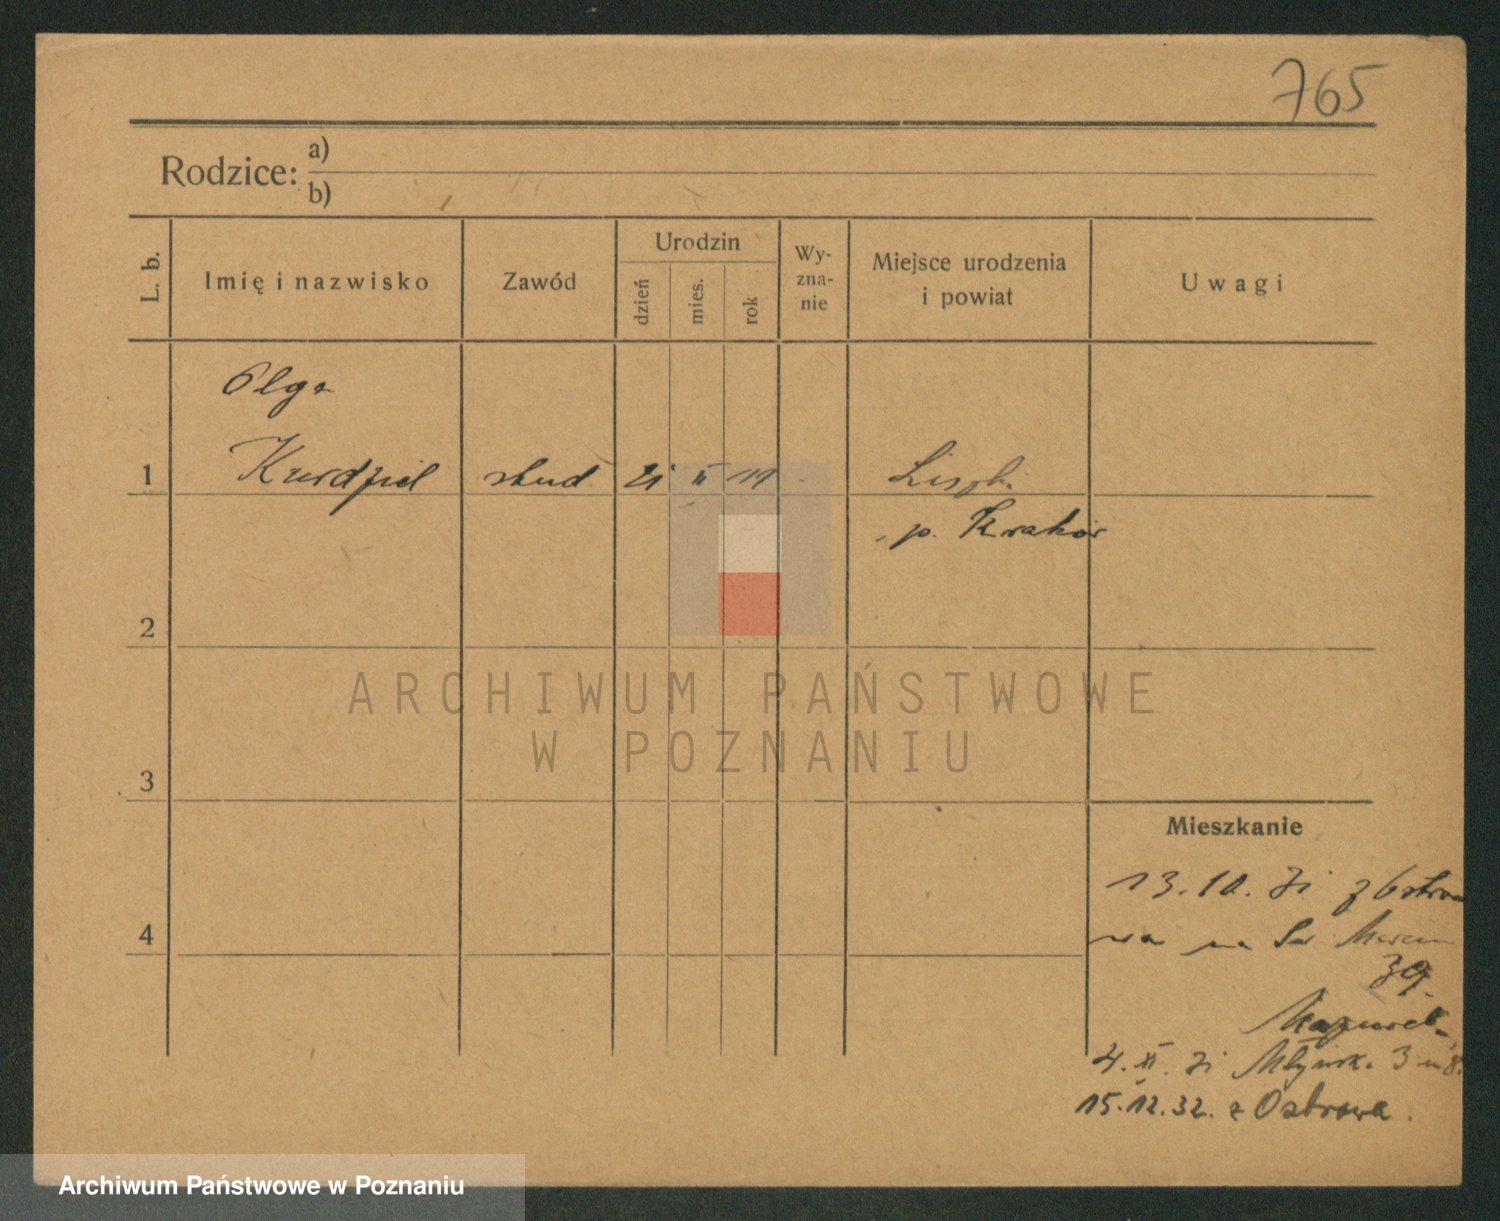 765
Rodzice: a)
b)
L. b.
Imię i nazwisko
Zawód
Urodzin
dzień
mies.
rok
Wy-
zna-
nie
Miejsce urodzenia
i powiat
Uwagi
Olga
1 Kurdziel stud. 21 II 11 Liszki
p. Kraków
2
3
4
Mieszkanie
13.10. 31 z Ostro
wa na Św Marcin
39.
Mazurek
4. XI. 31 Młyńska 3 m 8.
15.12.32. z Ostrowa.
ARCHIWUM PAŃSTWOWE
W POZNANIU
Archiwum Państwowe w Poznaniu